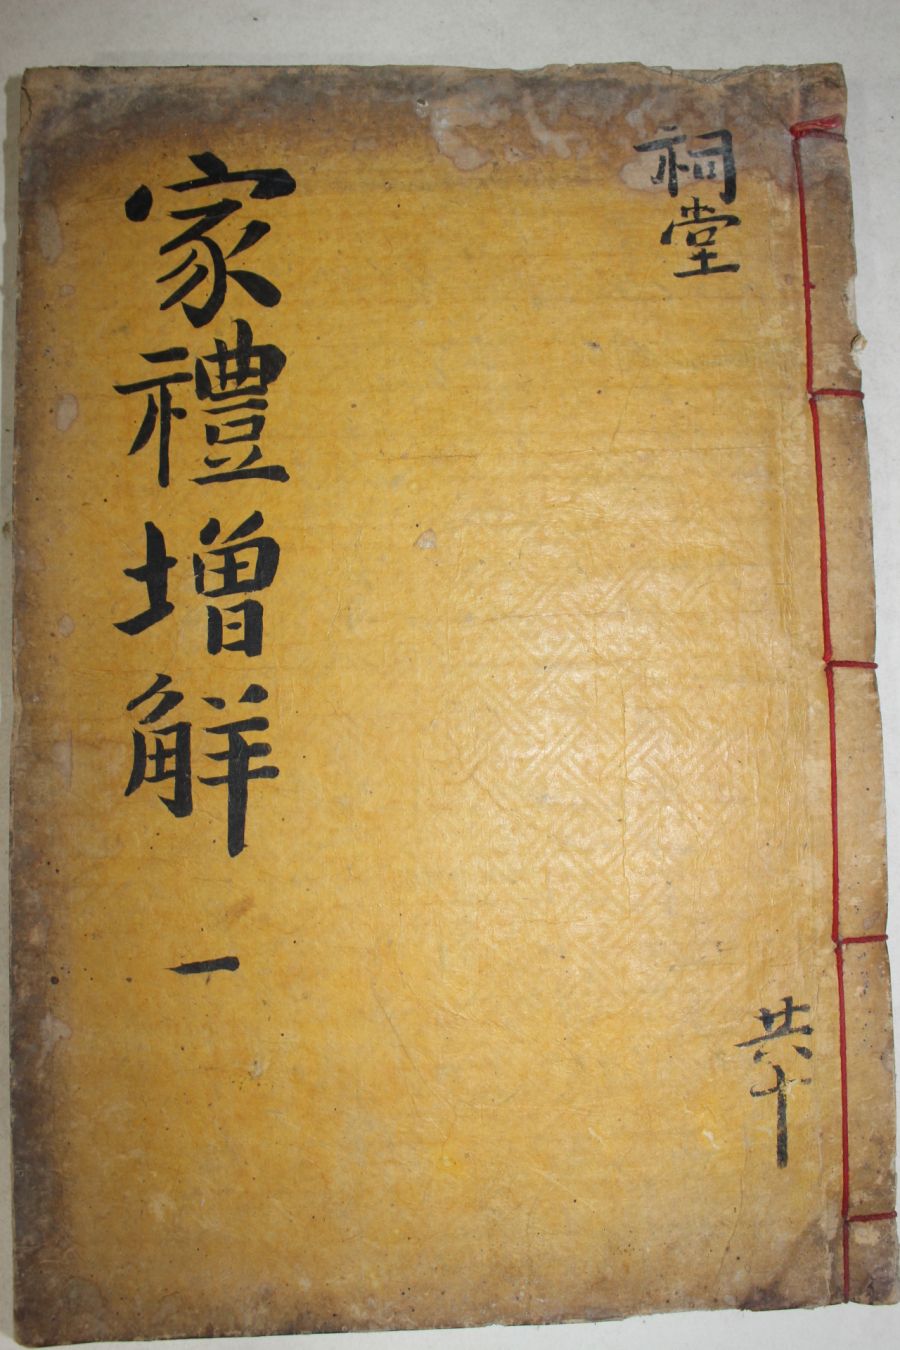 祠堂
家禮增觧 一
共十